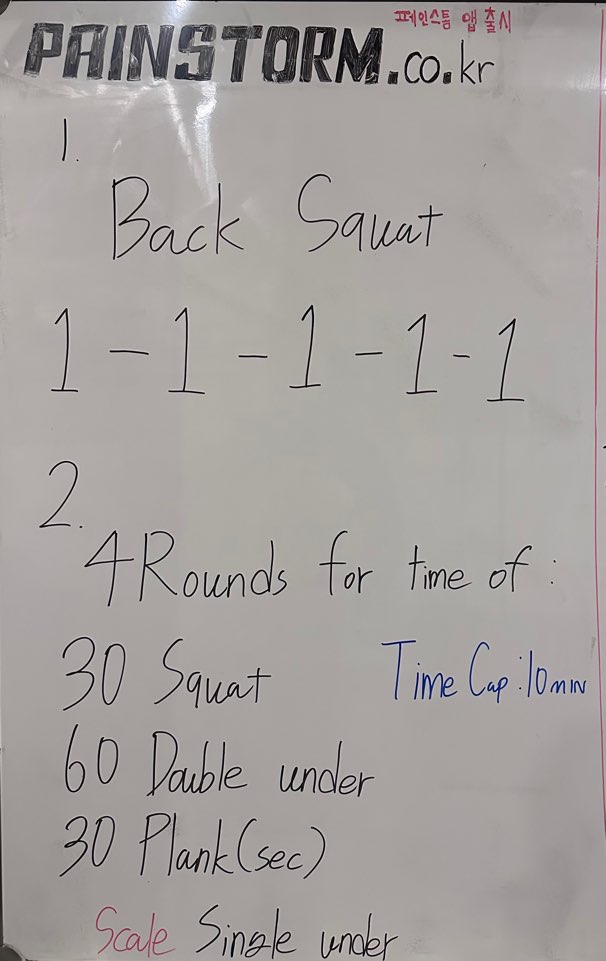 페인스톰 앱 출시
PAINSTORM.co.kr
1.
Back Squat
1 - 1 - 1 - 1 - 1
2.
4 Rounds for time of :
30 Squat Time Cap : 10 min
60 Double under
30 Plank (sec)
Scale Single under